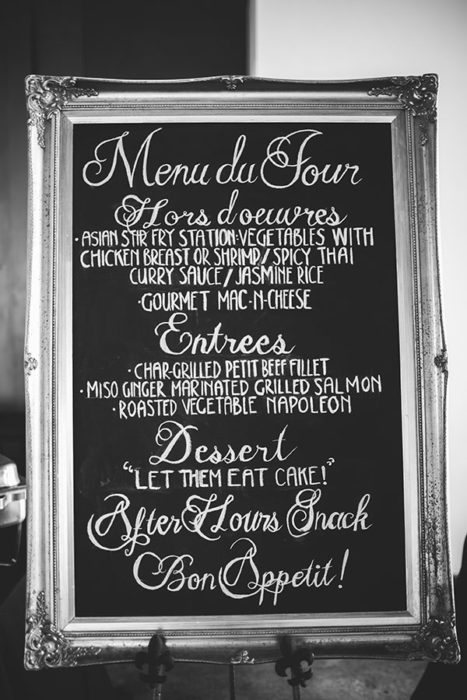 Menu du Jour
Hors d'oeuvres
· ASIAN STIR FRY STATION: VEGETABLES WITH
CHICKEN BREAST OR SHRIMP / SPICY THAI
CURRY SAUCE / JASMINE RICE
· GOURMET MAC·N·CHEESE
Entrees
· CHAR-GRILLED PETIT BEEF FILLET
· MISO GINGER MARINATED GRILLED SALMON
· ROASTED VEGETABLE NAPOLEON
Dessert
"LET THEM EAT CAKE!"
After Hours Snack
Bon Appetit!